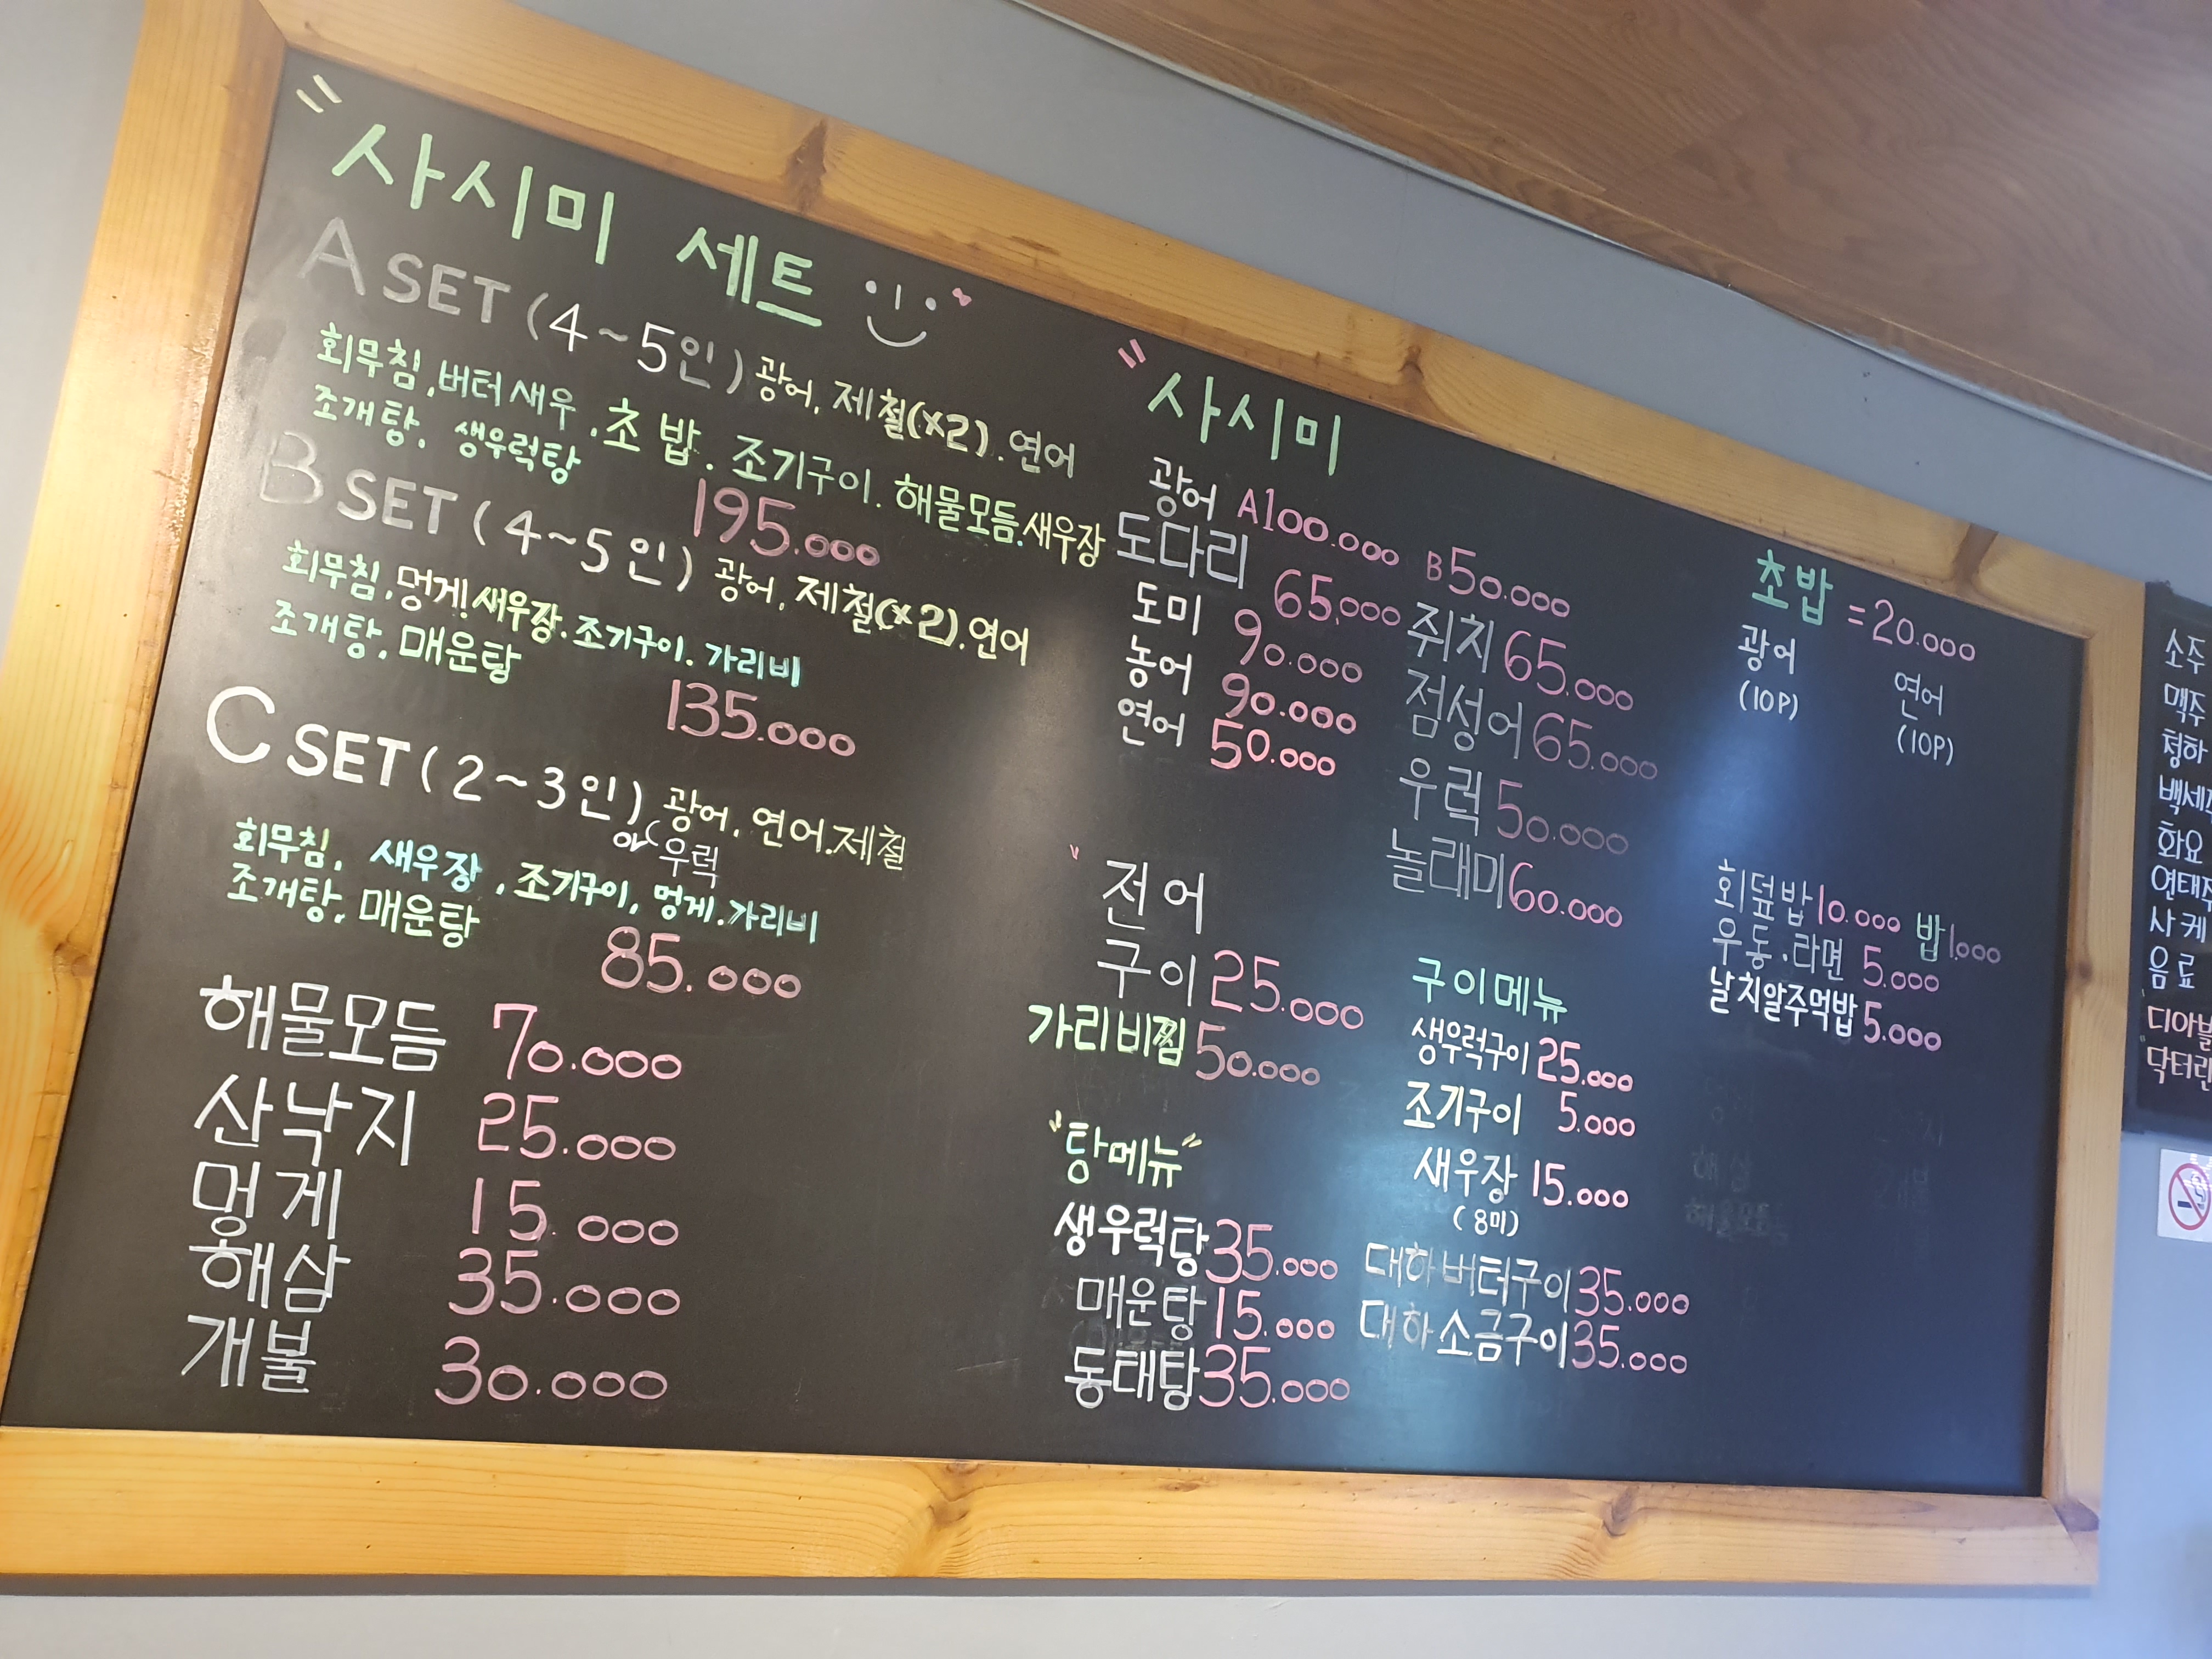 사시미 세트
A SET (4~5인) 광어, 제철(x2). 연어
회무침, 버터새우, 초밥. 조기구이. 해물모듬. 새우장
조개탕. 생우럭탕
195.000
B SET (4~5인) 광어, 제철(x2). 연어
회무침, 멍게 새우장. 조기구이. 가리비
조개탕, 매운탕
135.000
C SET (2~3인) 광어, 연어. 제철
우럭
회무침, 새우장, 조기구이, 멍게. 가리비
조개탕, 매운탕
85.000
해물모듬 70.000
산낙지 25.000
멍게 15.000
해삼 35.000
개불 30.000
사시미
광어 A100.000 B50.000
도다리 65,000
도미 90.000
농어 90.000
연어 50.000
쥐치 65.000
점성어 65.000
우럭 50.000
놀래미 60.000
전어
구이 25.000
가리비찜 50.000
"탕메뉴"
생우럭탕 35.000
매운탕 15.000
동태탕 35.000
구이메뉴
생우럭구이 25.000
조기구이 5.000
새우장 15.000
(8미)
대하버터구이 35.000
대하소금구이 35.000
초밥 =20.000
광어 연어
(10P) (10P)
회덮밥 10.000 밥 1.000
우동.라면 5.000
날치알주먹밥 5.000
소주
맥주
청하
화요
사케
음료